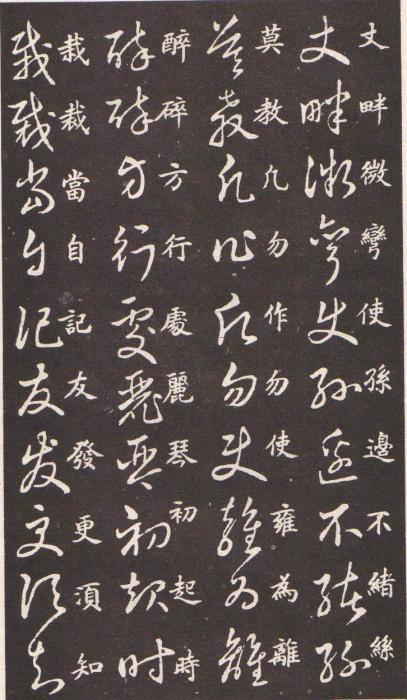 丈畔微彎使孫邊不緒絲
莫教凡勿作勿使雍為離
醉碎方行處麗琴初起時
栽裁當自記友發更湏知